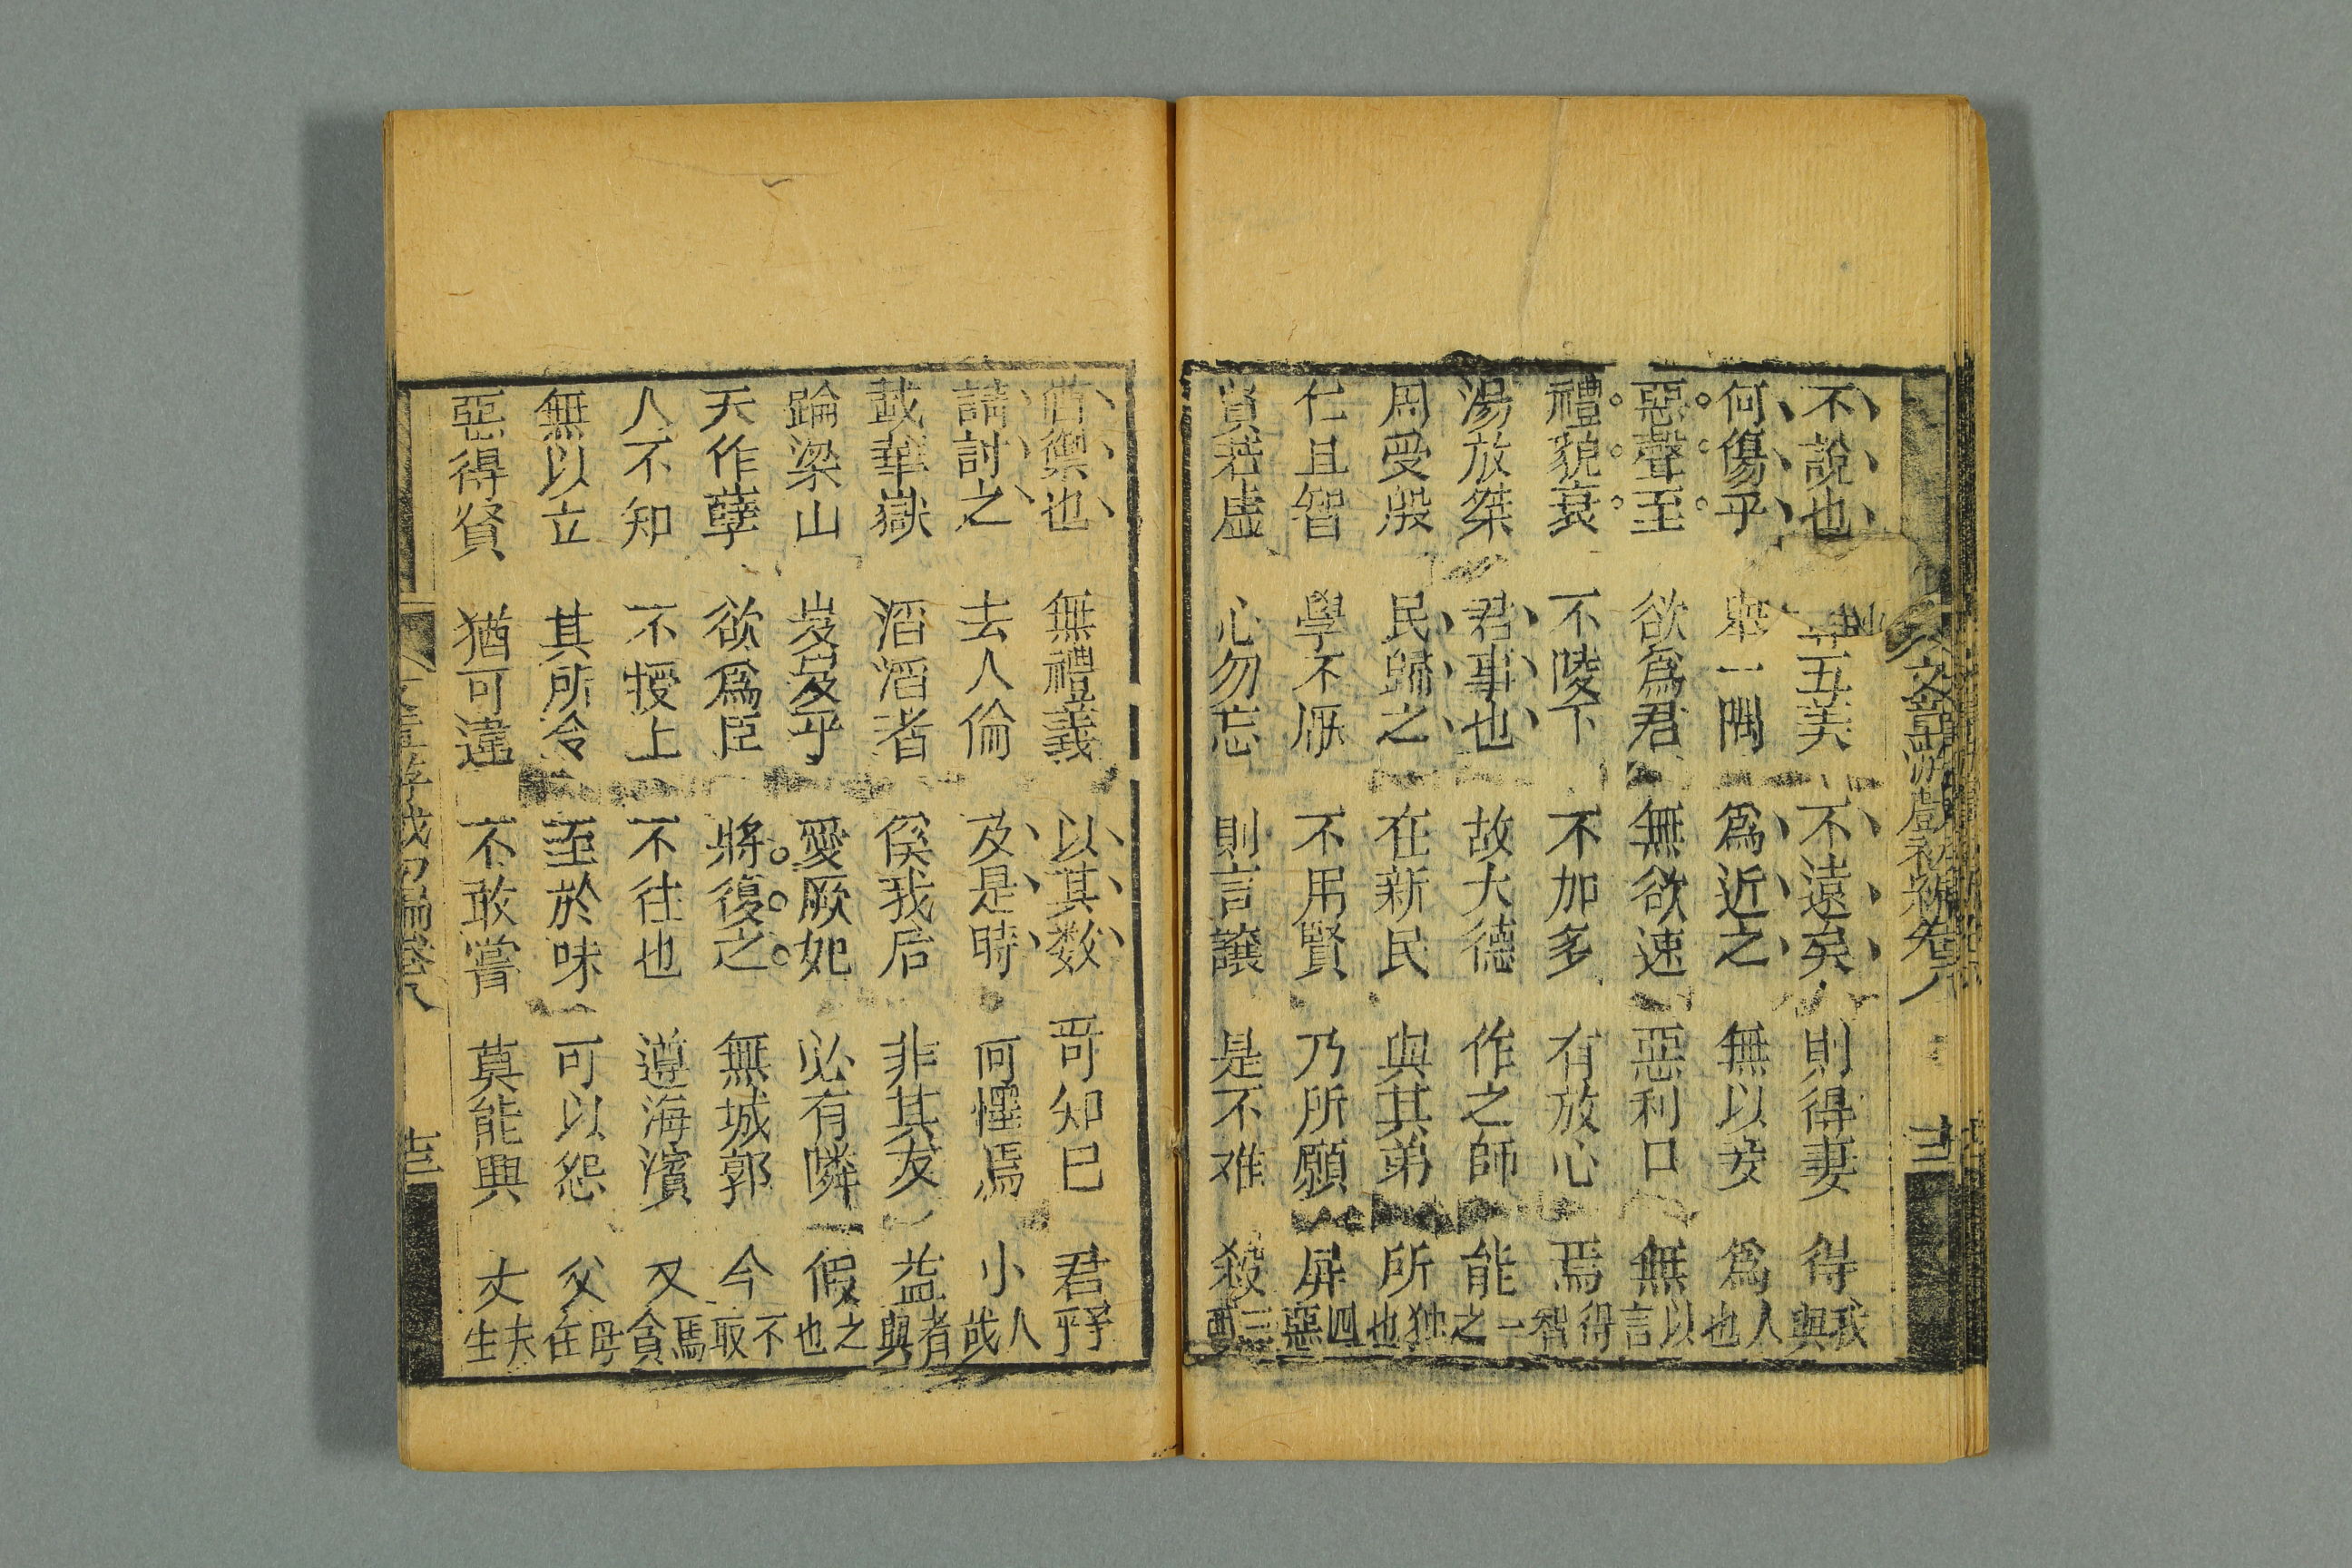 不說也 尊五美 不遠矣 則得妻 得我與
何傷乎 舉一隅 爲近之 無以安 爲人也
惡聲至 欲爲君 無欲速 惡利口 無以言
禮貌衰 不陵下 不加多 有放心 焉得智
湯放桀 君事也 故大德 作之師 能一之
周受殷 民歸之 在新民 與其弟 所独也
仁且智 學不厭 不用賢 乃所願 屏四惡
賢若虛 心勿忘 則言讓 是不难 殺三
文章游戲初編卷八
苗禦也 無禮義 以其数 哥知已 君子乎
請討之 去人倫 及是時 何懼焉 小人哉
載華嶽 滔滔者 徯我后 非其友 益者與
踰梁山 岌岌乎 愛厥妃 必有隣 假之也
天作孽 欲爲臣 將復之 無城郭 今不取
人不知 不授上 不往也 遵海濱 又焉貪
無以立 其所令 至於味 可以怨 父母在
惡得賢 猶可違 不敢嘗 莫能興 丈夫生
文章游戲初編卷八